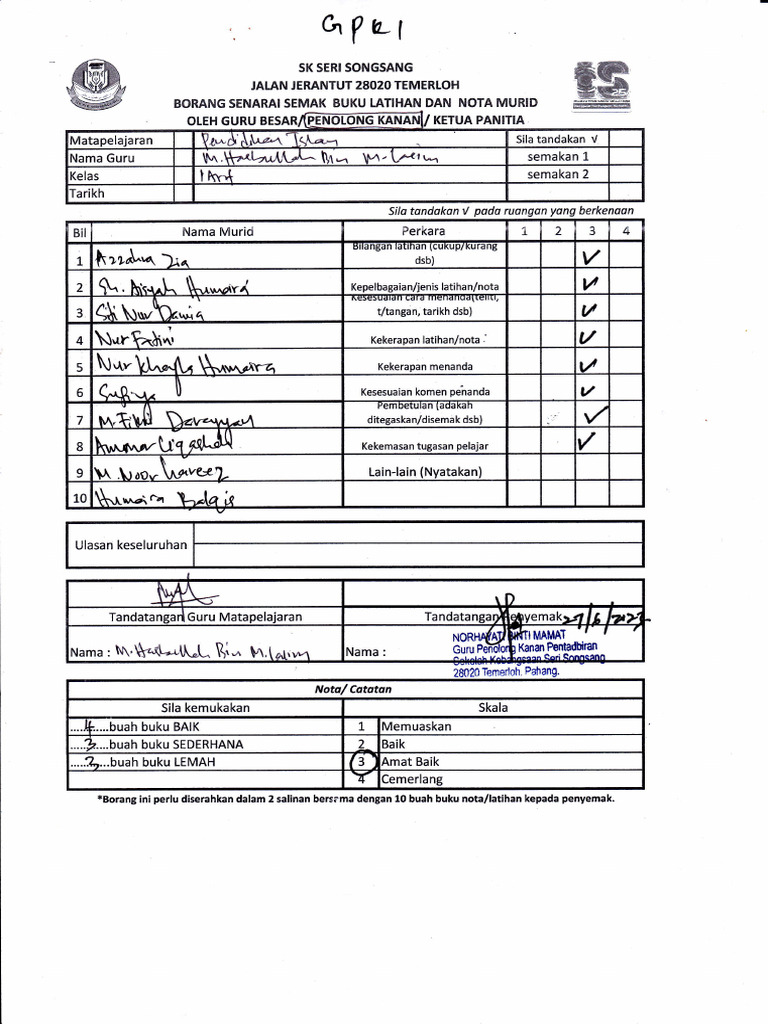 GPK1
SK SERI SONGSANG
JALAN JERANTUT 28020 TEMERLOH
BORANG SENARAI SEMAK BUKU LATIHAN DAN NOTA MURID
OLEH GURU BESAR/ PENOLONG KANAN / KETUA PANITIA
Matapelajaran Pendidikan Islam Sila tandakan √
Nama Guru M. Bin semakan 1
Kelas 1 Arif semakan 2
Tarikh
Sila tandakan √ pada ruangan yang berkenaan
Bil Nama Murid Perkara 1 2 3 4
1 Azzahra Zia Bilangan latihan (cukup/kurang dsb) ✓
2 Sh. Aisyah Humaira Kepelbagaian/jenis latihan/nota ✓
3 Siti Nur Dania Kesesuaian cara menanda(teliti, t/tangan, tarikh dsb) ✓
4 Nur Fatini Kekerapan latihan/nota ✓
5 Nur Khayla Humaira Kekerapan menanda ✓
6 Sufiya Kesesuaian komen penanda ✓
7 M. Fikri Pembetulan (adakah ditegaskan/disemak dsb) ✓
8 Ammar Kekemasan tugasan pelajar ✓
9 M. Noor Lain-lain (Nyatakan)
10 Humaira Balqis
Ulasan keseluruhan
Tandatangan Guru Matapelajaran Tandatangan Penyemak 27/6/2023
Nama : M. Bin Nama :
NORHAYATI BINTI MAMAT
Guru Penolong Kanan Pentadbiran
Sekolah Kebangsaan Seri Songsang
28020 Temerloh, Pahang.
Nota/ Catatan
Sila kemukakan Skala
.....4....buah buku BAIK 1 Memuaskan
.....3....buah buku SEDERHANA 2 Baik
.....3....buah buku LEMAH 3 Amat Baik
4 Cemerlang
*Borang ini perlu diserahkan dalam 2 salinan bersama dengan 10 buah buku nota/latihan kepada penyemak.